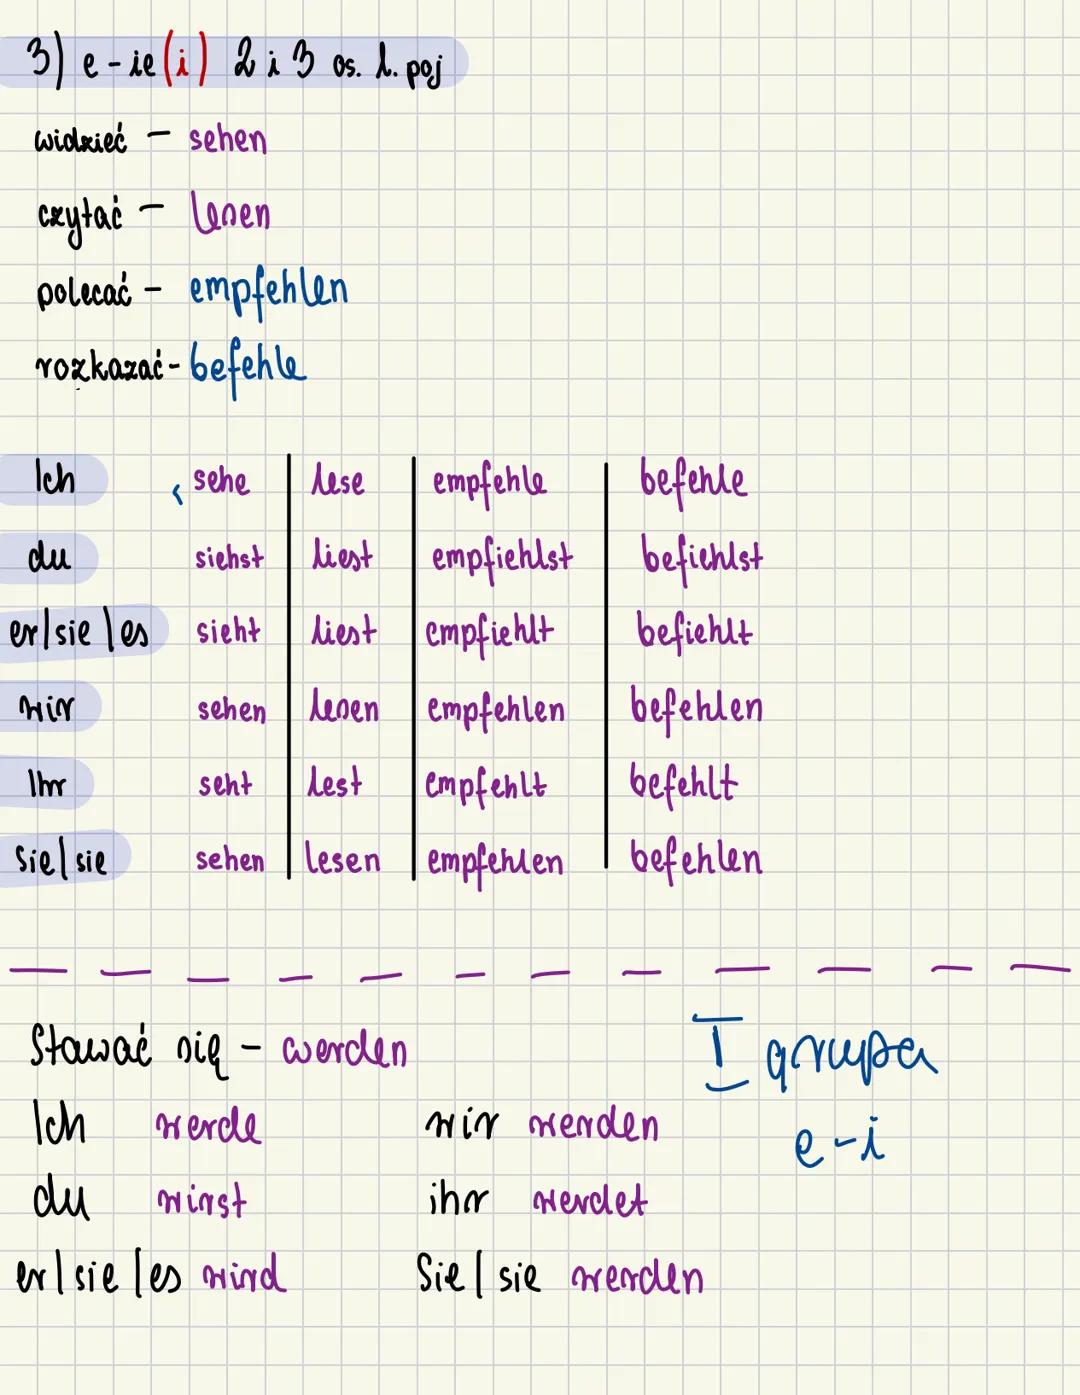 3) e-ie(i) 2 i 3 os. l. poj
widzieć – sehen
czytać – lesen
polecać – empfehlen
rozkazać - befehle
Ich sehe lese empfehle befehle
du siehst liest empfiehlst befiehlst
er/sie/es sieht liest empfiehlt befiehlt
wir sehen lesen empfehlen befehlen
Ihr seht lest empfehlt befehlt
Sie/sie sehen lesen empfehlen befehlen
Stawać się – werden
I grupa
Ich werde wir werden
e-i
du wirst ihr werdet
er/sie/es wird Sie/sie werden